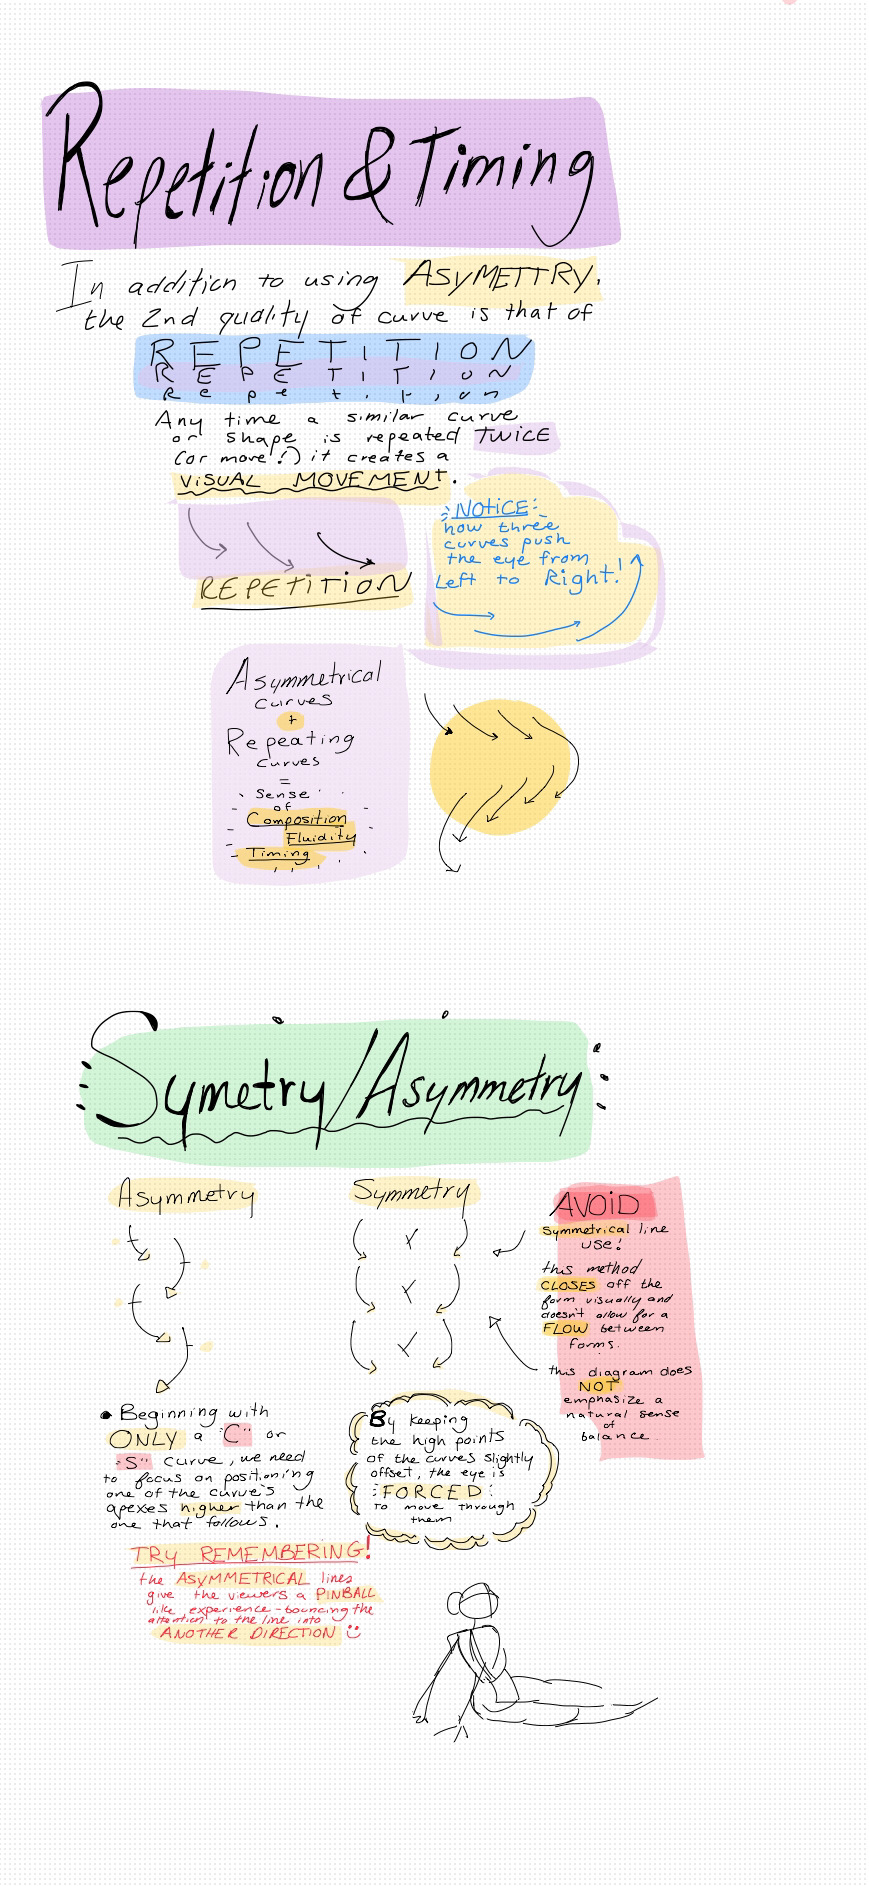 Repetition & Timing
In addition to using ASYMETTRY,
the 2nd quality of curve is that of
REPETITION
REPETITION
Repetition
Any time a similar curve
or shape is repeated TWICE
(or more!) it creates a
VISUAL MOVEMENT.
REPETITION
NOTICE
how three
curves push
the eye from
Left to Right!
Asymmetrical
curves
+
Repeating
curves
=
Sense
of
Composition
Fluidity
Timing
Symetry/Asymmetry
Asymmetry
Symmetry
AVOID
symmetrical line
use!
this method
CLOSES off the
form visually and
doesn't allow for a
FLOW between
forms.
this diagram does
NOT
emphasize a
natural sense
of
balance
• Beginning with
ONLY a "C" or
"S" curve, we need
to focus on positioning
one of the curve's
apexes higher than the
one that follows.
By keeping
the high points
of the curves slightly
offset, the eye is
FORCED
to move through
them
TRY REMEMBERING!
the ASYMMETRICAL lines
give the viewers a PINBALL
like experience - bouncing the
attention to the line into
ANOTHER DIRECTION